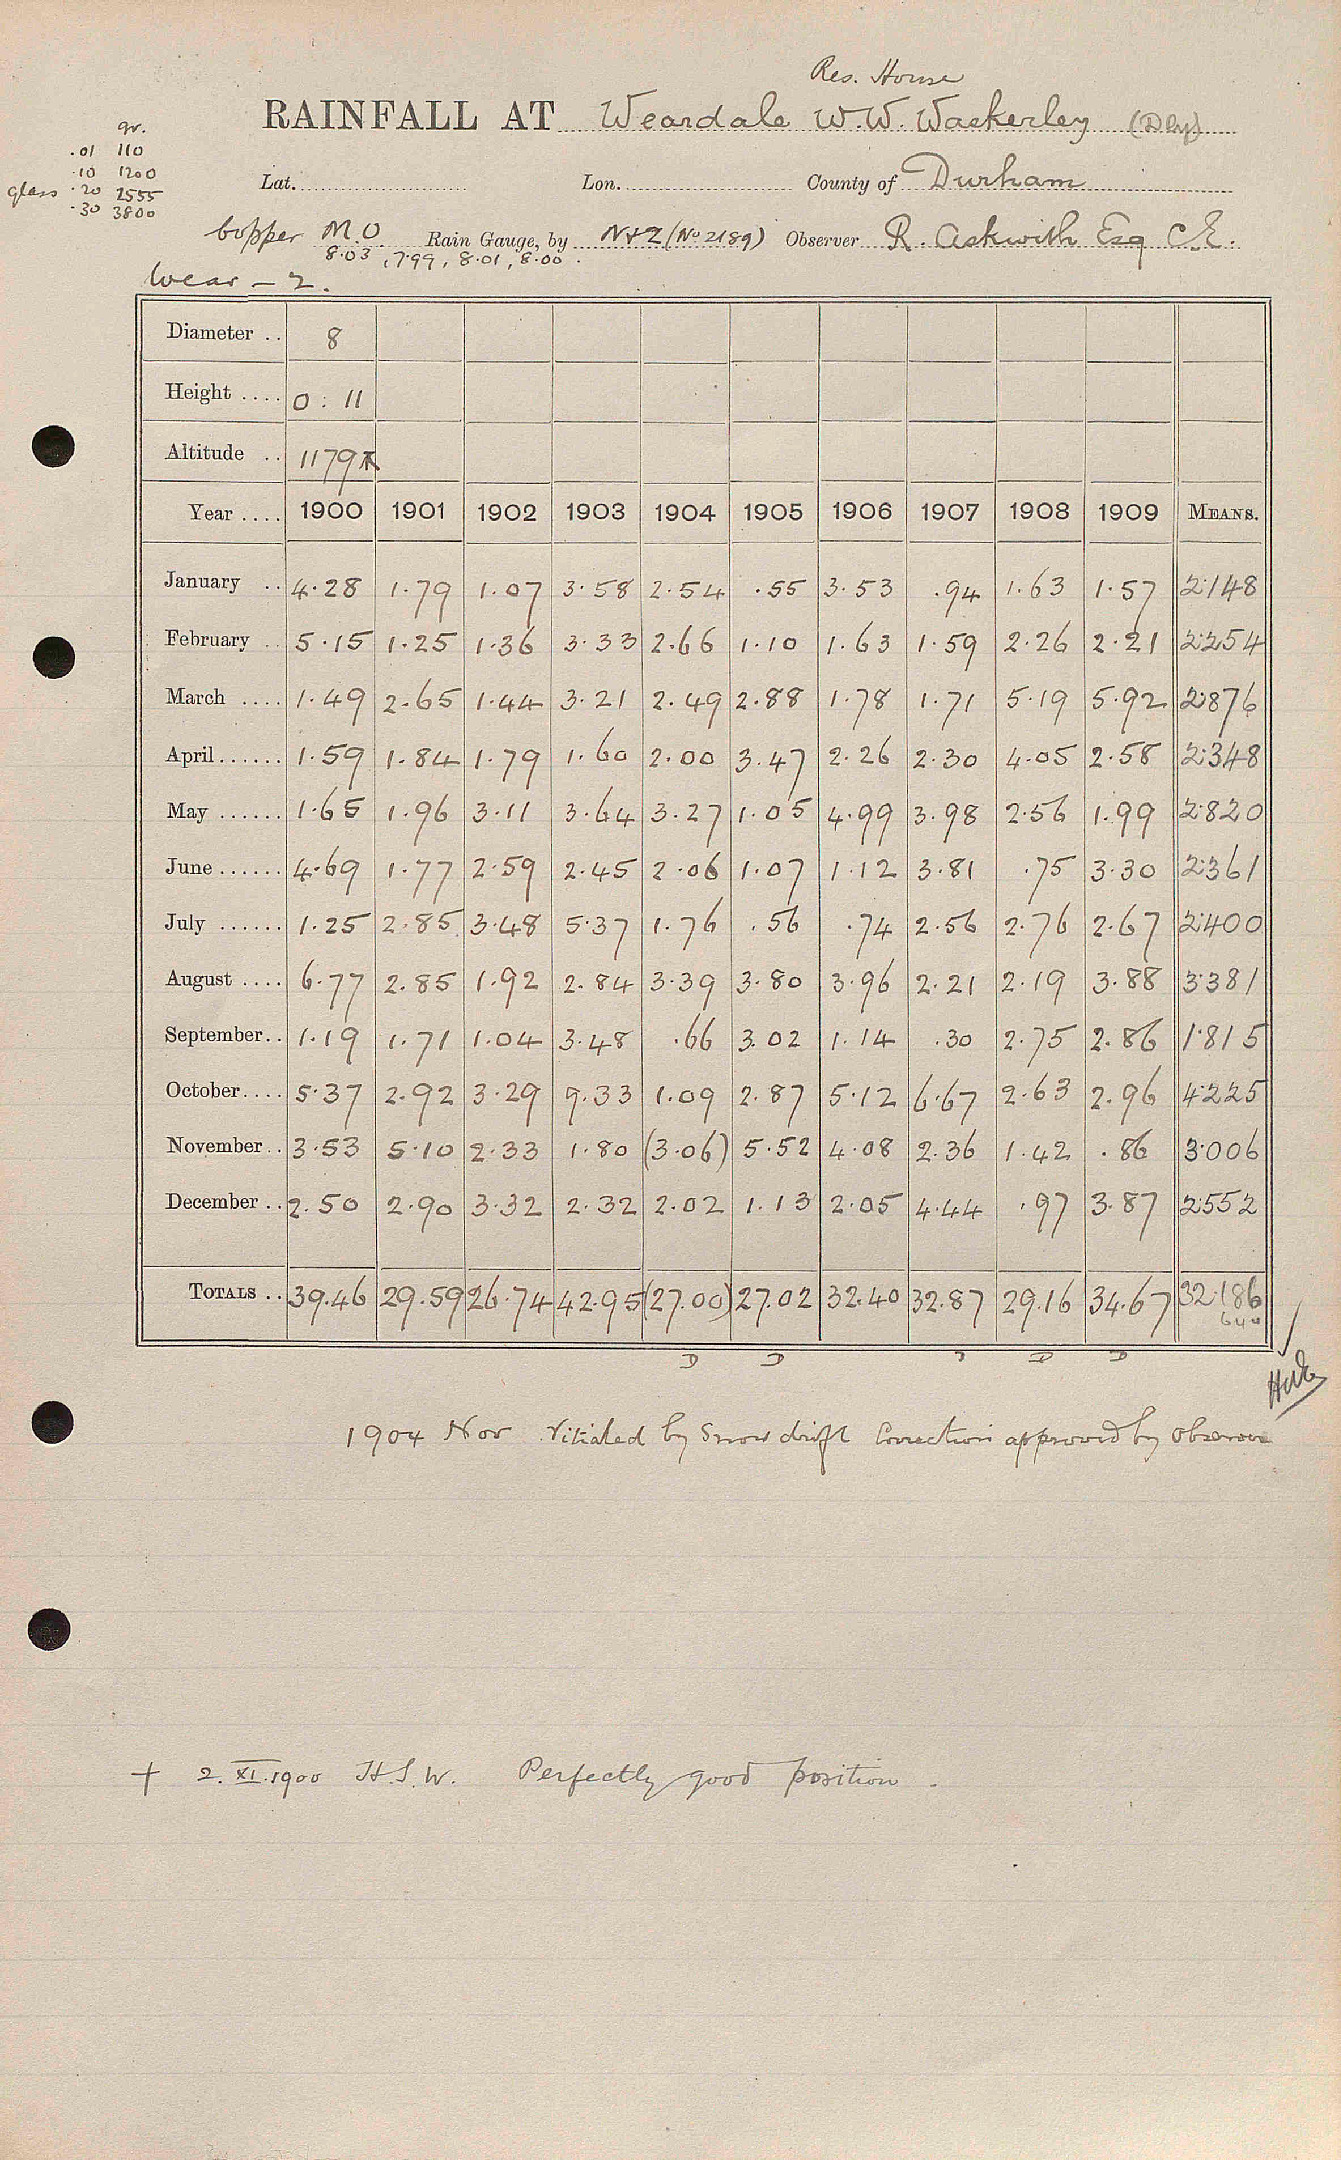 Res. House
RAINFALL AT Weardale W.W. Waskerley (Dly)
gr.
.01 110
.10 1200
glass .20 2555
.30 3800
Lat. Lon. County of Durham
Copper M.O Rain Gauge, by N+Z (No 2189) Observer R. Askwith Esq C.E.
8.03, 7.99, 8.01, 8.00.
Wear - 2.
Diameter .. 8
Height .... 0 : 11
Altitude .. 1179
Year .... 1900 1901 1902 1903 1904 1905 1906 1907 1908 1909 MEANS.
January .. 4.28 1.79 1.07 3.58 2.54 .55 3.53 .94 1.63 1.57 2.148
February .. 5.15 1.25 1.36 3.33 2.66 1.10 1.63 1.59 2.26 2.21 2.254
March .... 1.49 2.65 1.44 3.21 2.49 2.88 1.78 1.71 5.19 5.92 2.876
April ...... 1.59 1.84 1.79 1.60 2.00 3.47 2.26 2.30 4.05 2.58 2.348
May ...... 1.65 1.96 3.11 3.64 3.27 1.05 4.99 3.98 2.56 1.99 2.820
June ...... 4.69 1.77 2.59 2.45 2.06 1.07 1.12 3.81 .75 3.30 2.361
July ...... 1.25 2.85 3.48 5.37 1.76 .56 .74 2.56 2.76 2.67 2.400
August .... 6.77 2.85 1.92 2.84 3.39 3.80 3.96 2.21 2.19 3.88 3.381
September .. 1.19 1.71 1.04 3.48 .66 3.02 1.14 .30 2.75 2.86 1.815
October .... 5.37 2.92 3.29 9.33 1.09 2.87 5.12 6.67 2.63 2.96 4.225
November .. 3.53 5.10 2.33 1.80 (3.06) 5.52 4.08 2.36 1.42 .86 3.006
December .. 2.50 2.90 3.32 2.32 2.02 1.13 2.05 4.44 .97 3.87 2.552
TOTALS .. 39.46 29.59 26.74 42.95 (27.00) 27.02 32.40 32.87 29.16 34.67 32.186
D D D D
1904 Nov vitiated by Snow drift Correction approved by observer
+ 2.XI.1900 H.S.W. Perfectly good position.